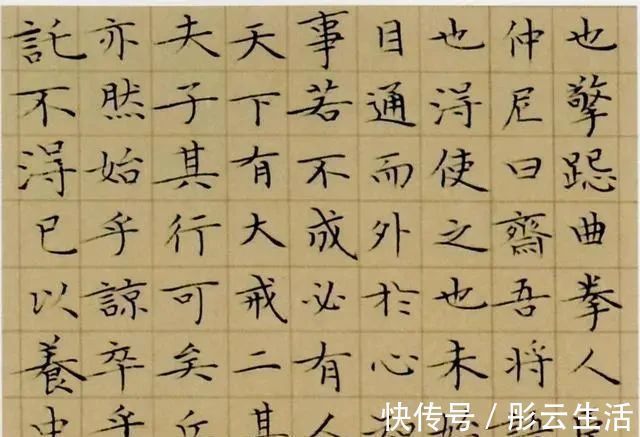 也擎跽曲拳人
仲尼曰齋吾將
也淂使之也未
目通而外於心
事若不成必有人
天下有大戒二其
夫子其行可矣丘
亦然始乎諒卒乎
託不淂已以養中
快传号 / 彤云生活